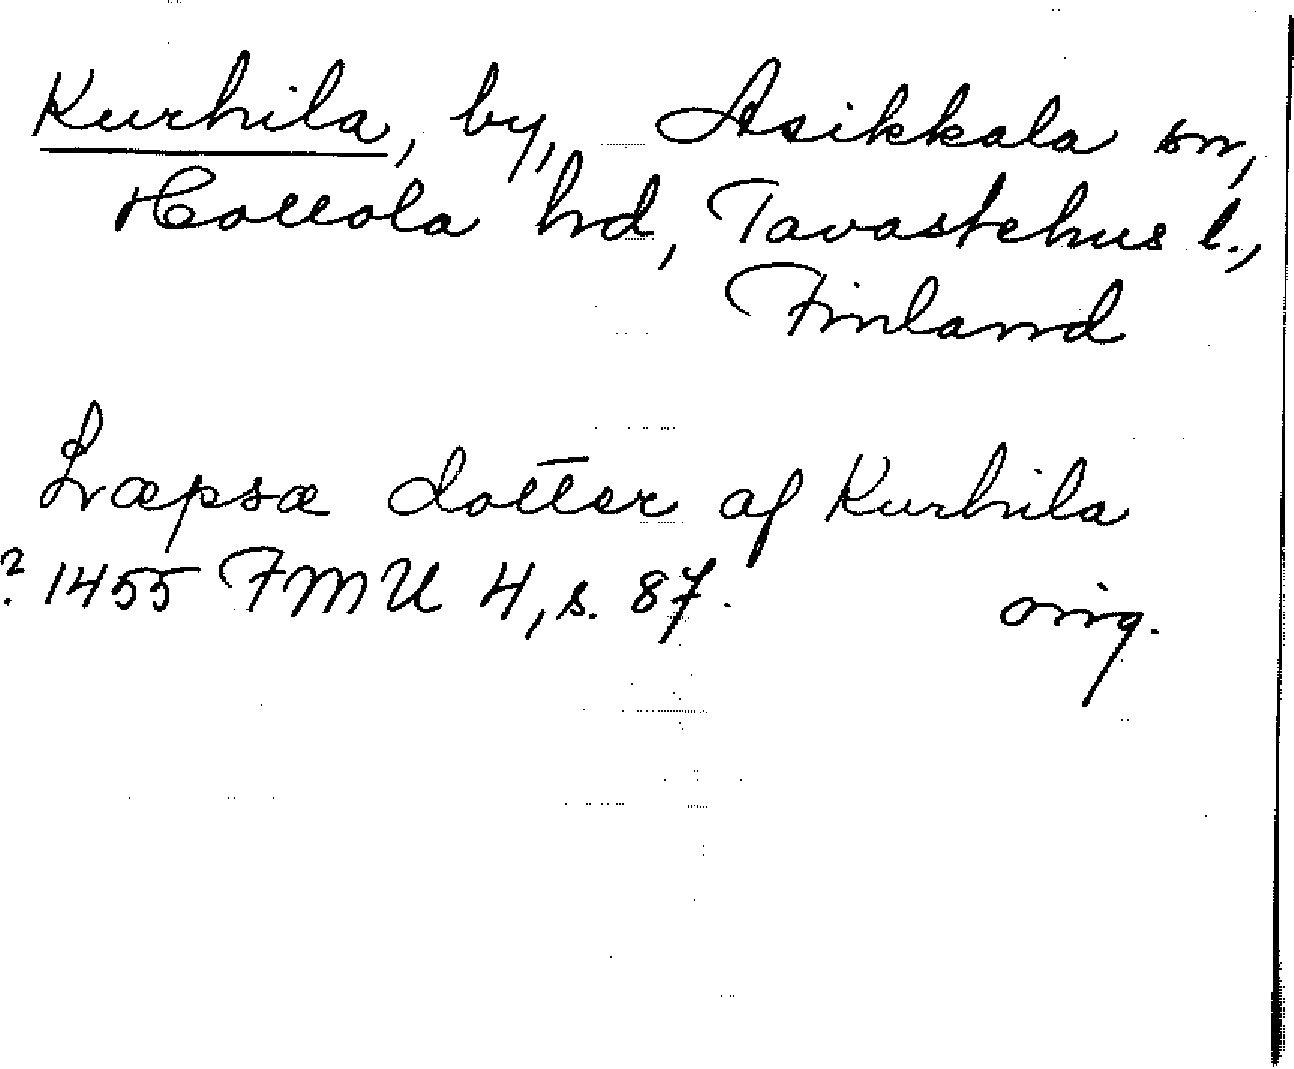 Kurhila, by, Asikkala sn,
Hollola hd, Tavastehus l.,
Finland
Lvæpsæ dotter af Kurhila
? 1455 FMU 4, s. 87. orig.